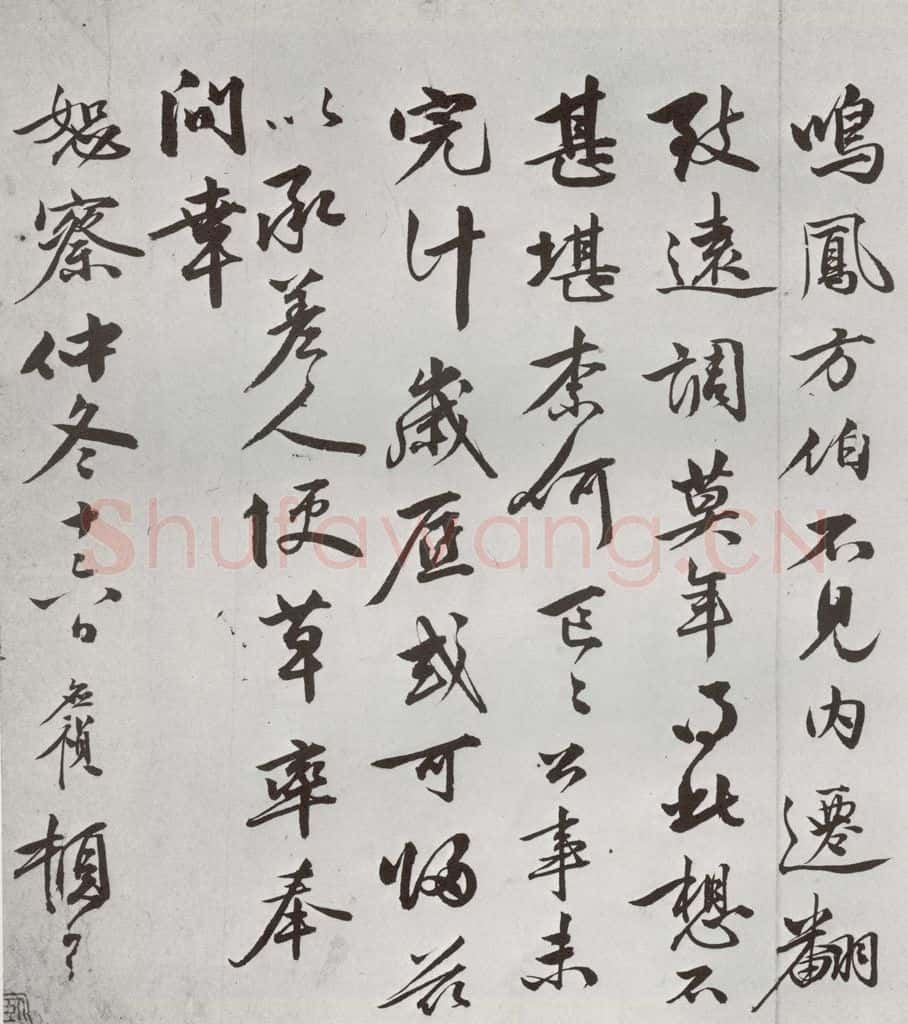 鳴鳳方伯不見内遷翻
致遠調莫年得此想不
甚堪柰何柰何公事未
完計歲暮或可歸茲
以承差人便草率奉
問幸
恕察仲冬十六日 名禎頓首
Shufawang.CN